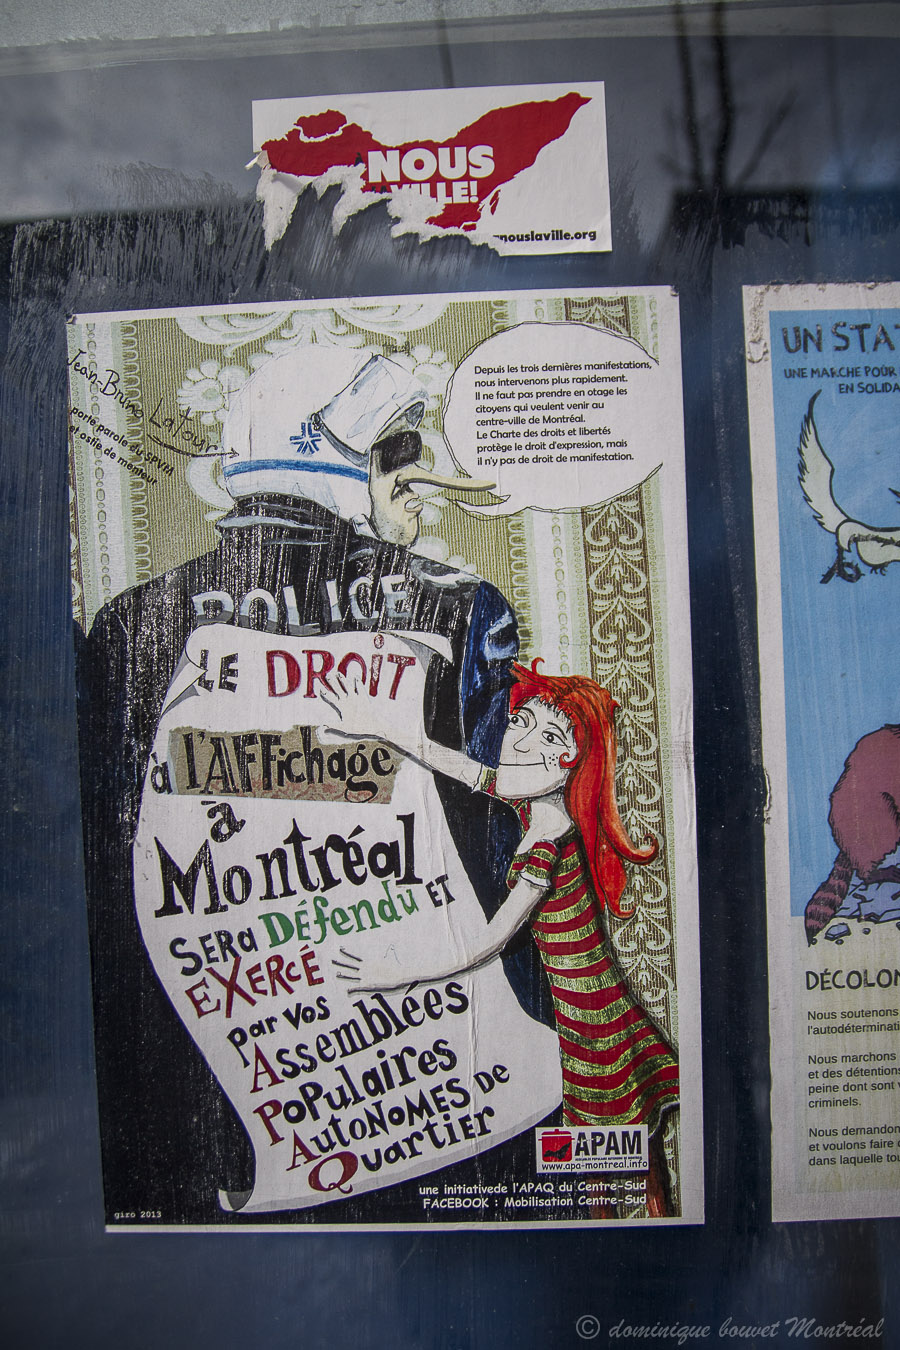 NOUS
VILLE!
nouslaville.org
Jean-Bruno Latour
porte parole du SPVM
et ostie de menteur
Depuis les trois dernières manifestations,
nous intervenons plus rapidement.
Il ne faut pas prendre en otage les
citoyens qui veulent venir au
centre-ville de Montréal.
Le Charte des droits et libertés
protège le droit d'expression, mais
il n'y pas de droit de manifestation.
POLICE
LE DROIT
à l'AFFichage
à
Montréal
SERA Défendu ET
EXERCÉ
par vos
Assemblées
Populaires
Autonomes de
Quartier
APAM
www.apa-montreal.info
une initiativede l'APAQ du Centre-Sud
FACEBOOK : Mobilisation Centre-Sud
giro 2013
UN STAT
UNE MARCHE POUR
EN SOLIDA
DÉCOLON
Nous soutenons
l'autodéterminati
Nous marchons
et des détentions
peine dont sont v
criminels.
Nous demandon
et voulons faire
dans laquelle tou
© dominique bouvet Montréal